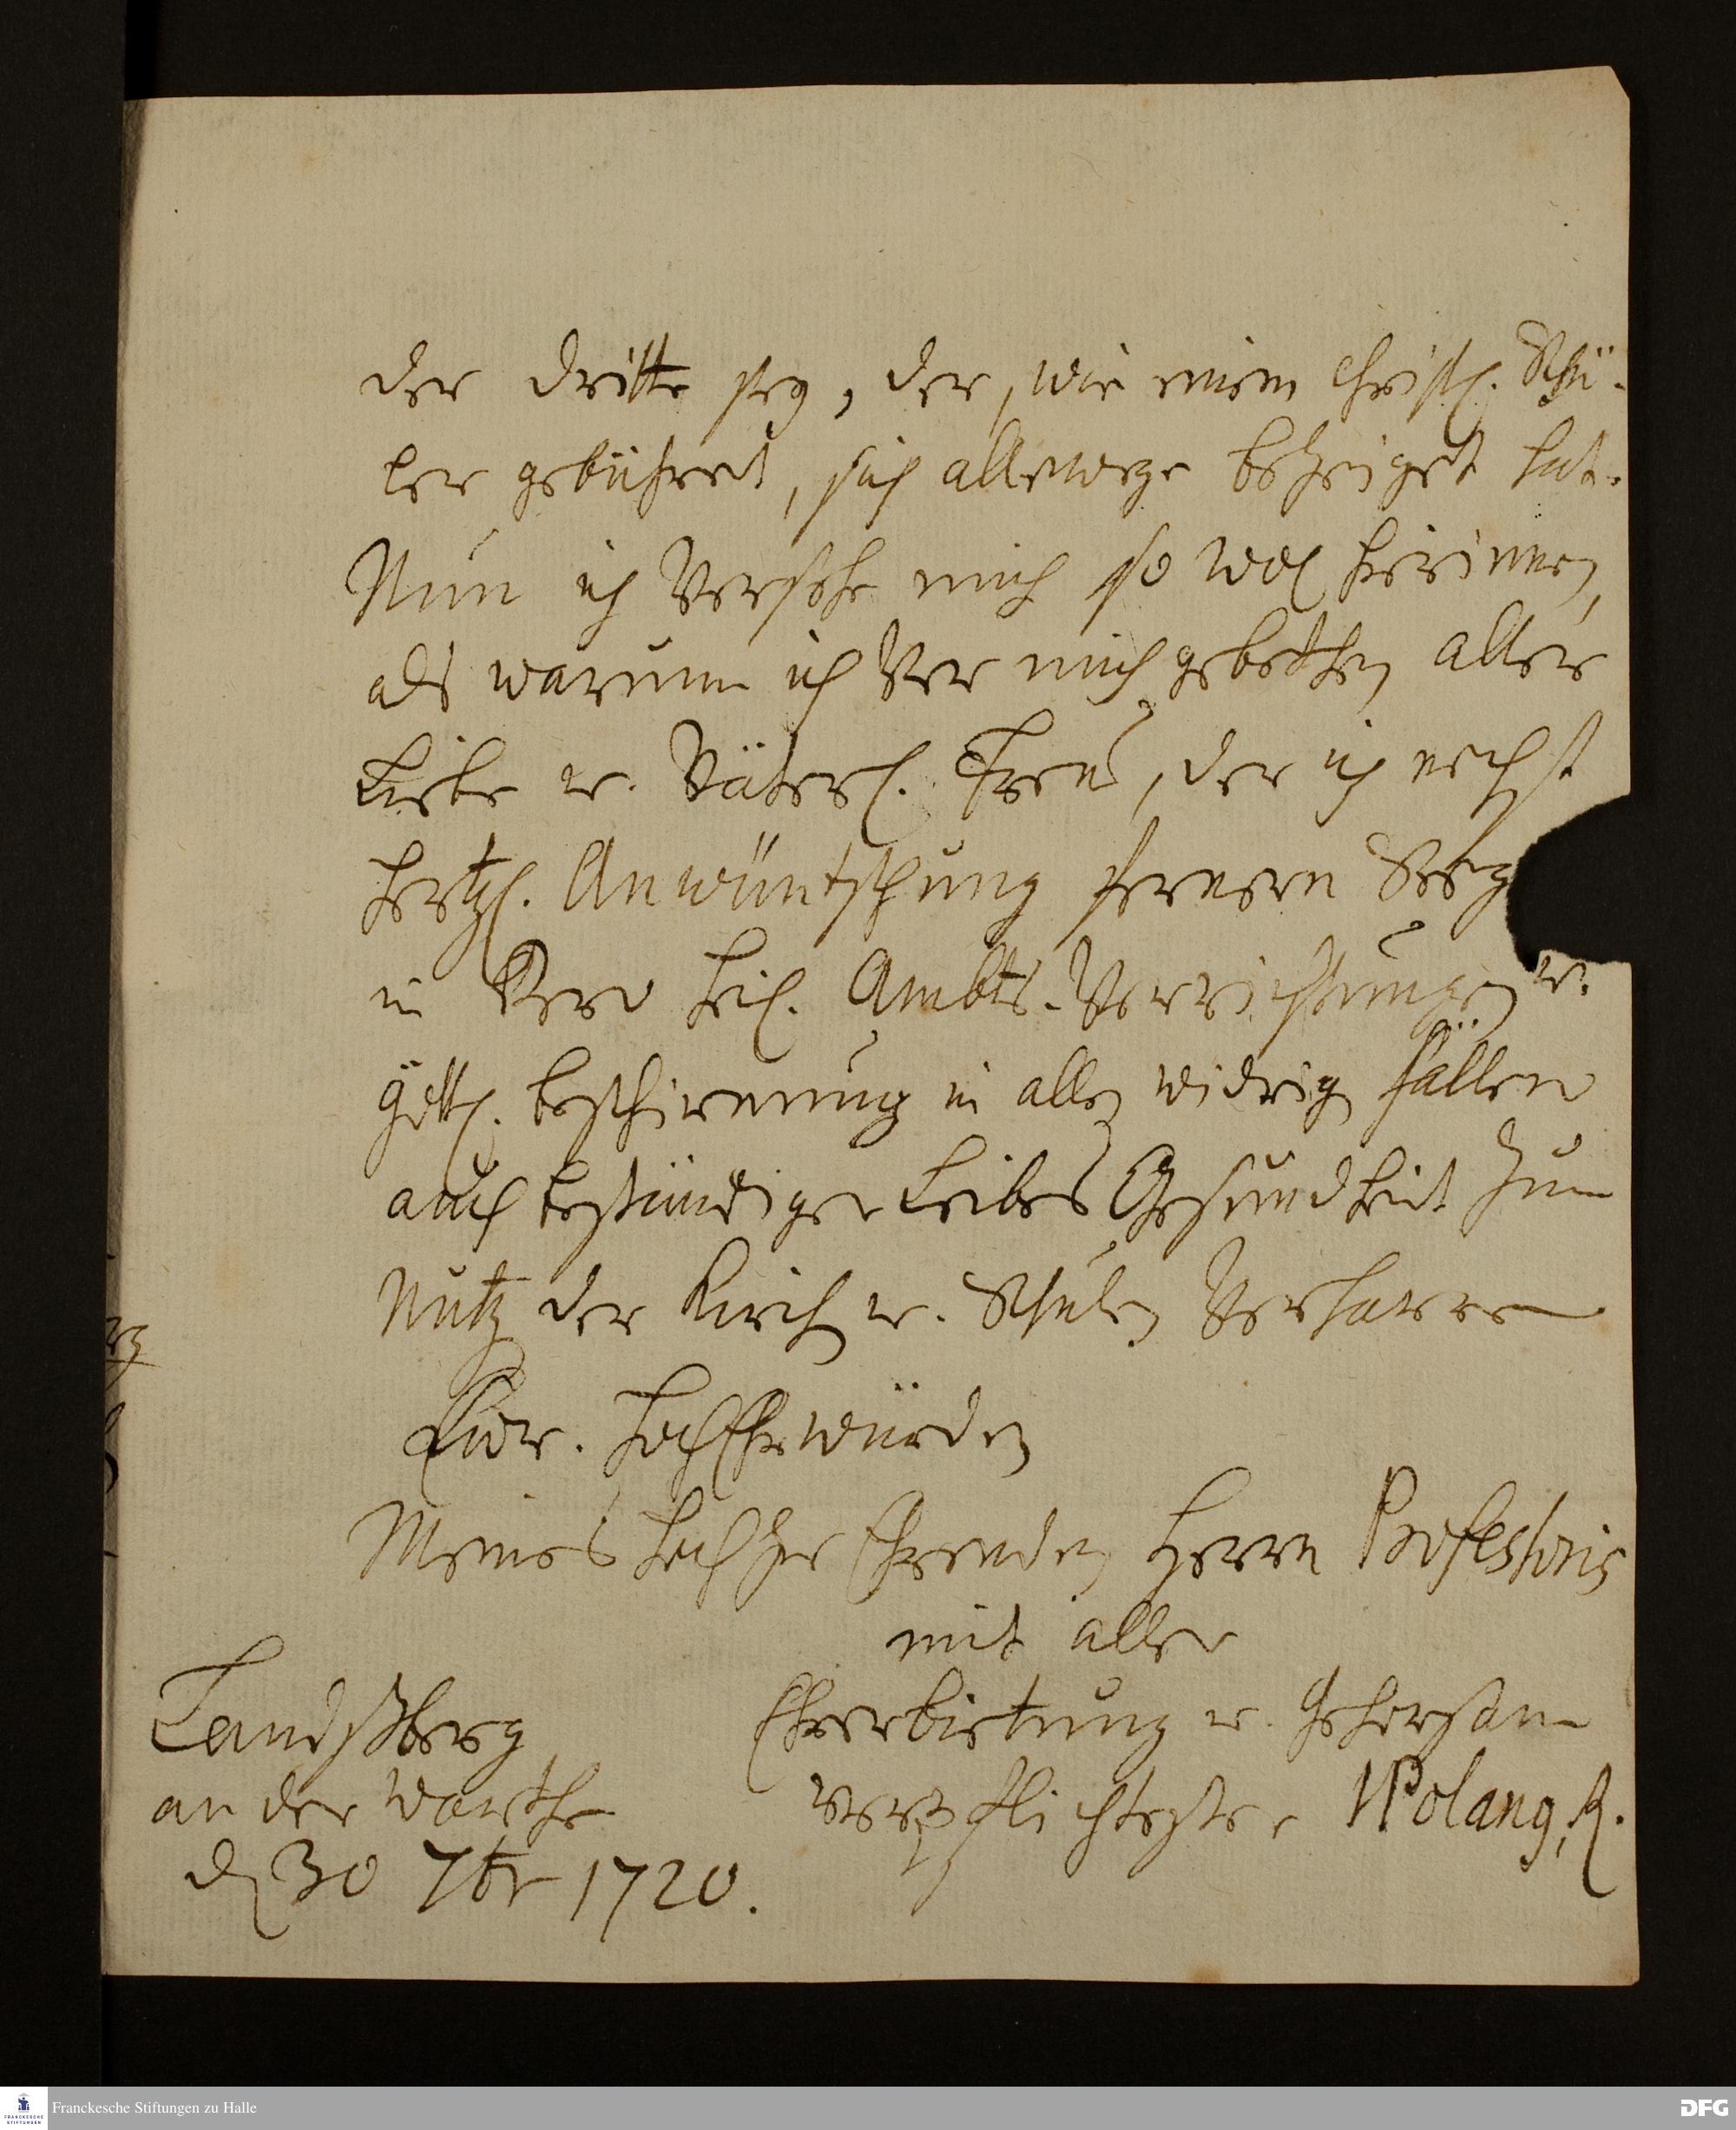 der dritte sey, der, wie einem christl. Schü-
ler gebühret, sich allewege bezeiget hat.
Nun ich versehe mich so wol hierinnen,
als warum ich vor mich gebethen aller
Liebe u. Väterl. Treu, der ich nechst
hertzl. Anwüntschung fernern Seeg
in Dero heil. Ambts-Verrichtungen u.
göttl. beschirmung in allen widrigen fällen
auch beständiger Leibes Gesundheit zum
Nutz der Kirchen u. Schulen verharre
Euer. HochEhrwürden
Meines HochzuEhrenden Herrn Professoris
mit aller
Ehrerbietung u. Gehorsam
verpflichtester Wolang, R.
Landsberg
an der Warthe
d 30 7br 1720.
Franckesche Stiftungen zu Halle
FRANCKESCHE STIFTUNGEN
DFG